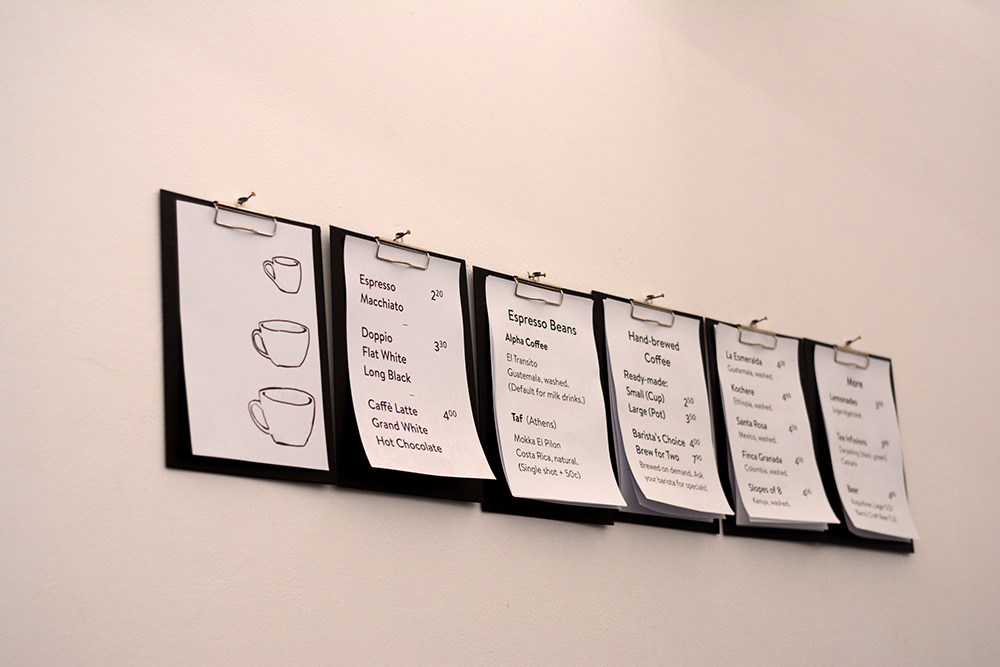 Espresso 2²⁰
Macchiato
–
Doppio 3³⁰
Flat White
Long Black
–
Caffè Latte 4⁰⁰
Grand White
Hot Chocolate
Espresso Beans
Alpha Coffee
El Transito
Guatemala, washed.
(Default for milk drinks.)
Taf (Athens)
Mokka El Pilon
Costa Rica, natural.
(Single shot + 50c)
Hand-brewed
Coffee
Ready-made:
Small (Cup) 2⁵⁰
Large (Pot) 3⁵⁰
Barista's Choice 4⁰⁰
Brew for Two 7⁹⁰
Brewed on demand. Ask
your barista for specials!
La Esmeralda
Guatemala, washed.
Kochere
Ethiopia, washed.
Santa Rosa
Mexico, washed.
Finca Granada
Colombia, washed.
Slopes of 8
Kenya, washed.
More
Lemonades
Tea Infusions
Darjeeling (black, green)
Beer